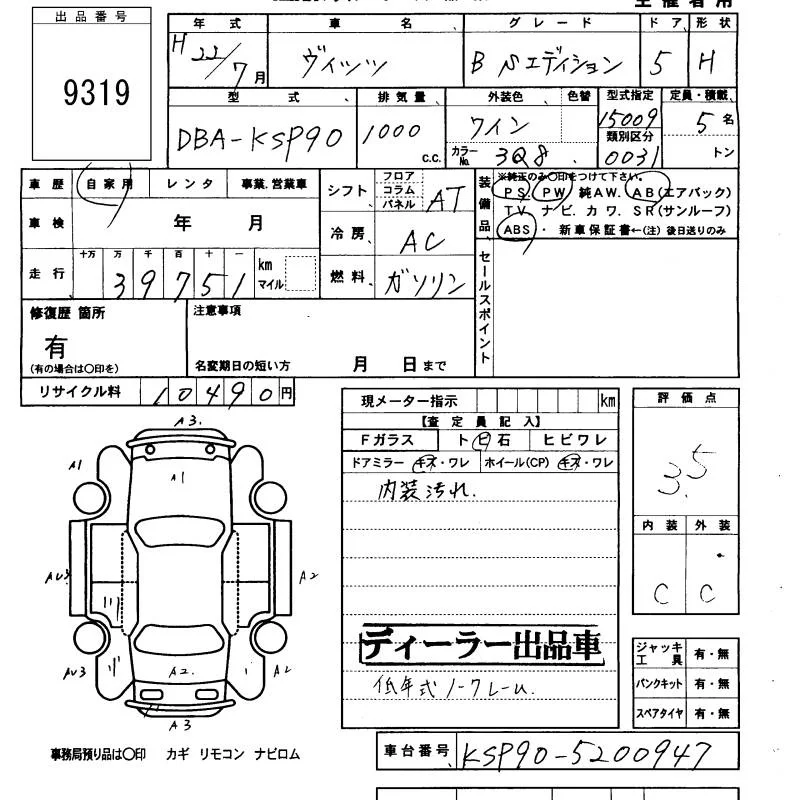 主催者用
出品番号
9319
年式 車名 グレード ドア 形状
H22/7月 ヴィッツ B Sエディション 5 H
型式 排気量 外装色 色替 型式指定 定員・積載
DBA-KSP90 1000 c.c. ワイン 15009 5名
カラーNo. 3Q8 類別区分 0031 トン
車歴 自家用 レンタ 事業.営業車
シフト フロア コラム パネル AT
装備品 ※純正のみ〇印をつけて下さい。
PS PW 純AW. AB(エアバック)
TV ナビ. カワ. SR(サンルーフ)
ABS・新車保証書←(注) 後日送りのみ
車検 年 月
冷房 AC
走行 十万 万 千 百 十 一
39751 km マイル
燃料 ガソリン
セールスポイント
修復歴 箇所
有
(有の場合は〇印を)
注意事項
名変期日の短い方 月 日まで
リサイクル料 10490円
現メーター指示 km
評価点
3.5
【査定員記入】
Fガラス トビ石 ヒビワレ
ドアミラー キズ・ワレ ホイール(CP) キズ・ワレ
内装汚れ.
内装 外装
C C
ディーラー出品車
低年式ノークレーム.
ジャッキ工具 有・無
パンクキット 有・無
スペアタイヤ 有・無
A3.
A1
A1
AU3
A2
AU3
A2.
A2
A3
事務局預り品は〇印 カギ リモコン ナビロム
車台番号 KSP90-5200947